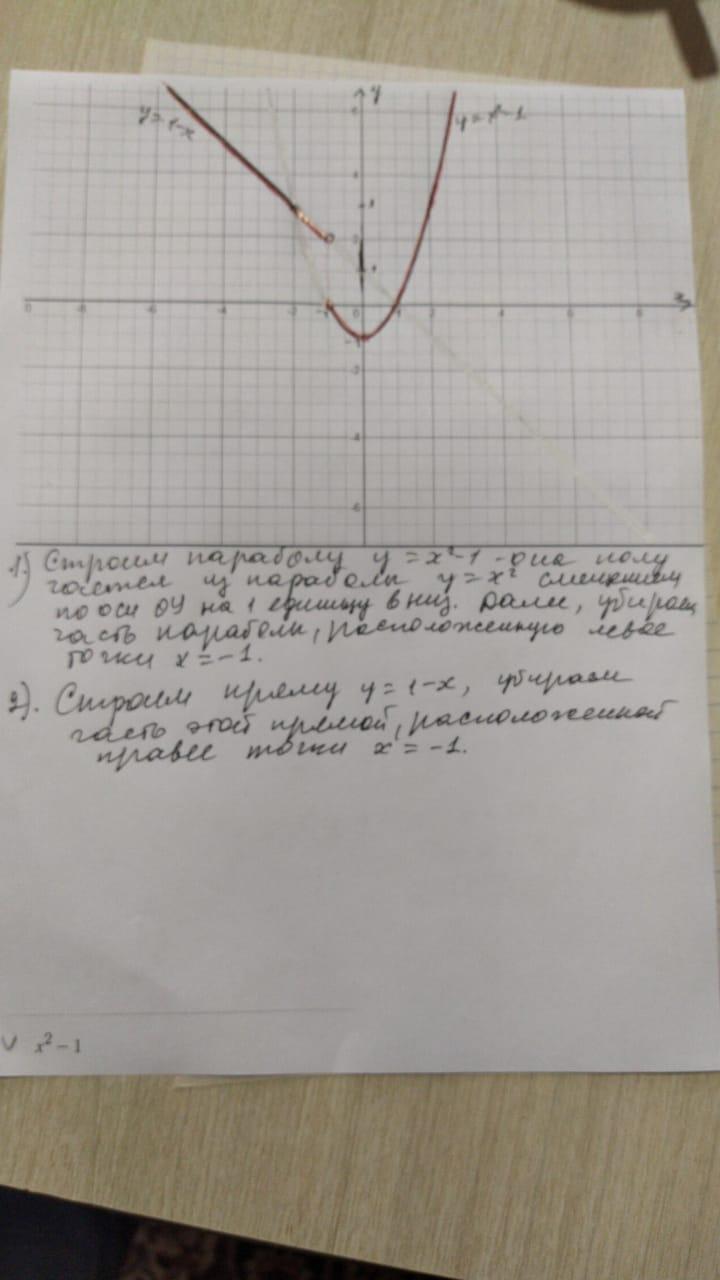 y
y = 1-x
y = x²-1
6
4
3
2
1
-8 -6 -4 -2 -1 0 1 2 4 6 8
-1
-2
-4
-6
1.) Строим параболу y = x²-1 - она полу
чается из параболы y = x² смещением
по оси OY на 1 единицу вниз. Далее, убираем
часть параболы, расположенную левее
точки x = -1.
2). Строим прямую y = 1-x, убираем
часть этой прямой, расположенной
правее точки x = -1.
x² – 1